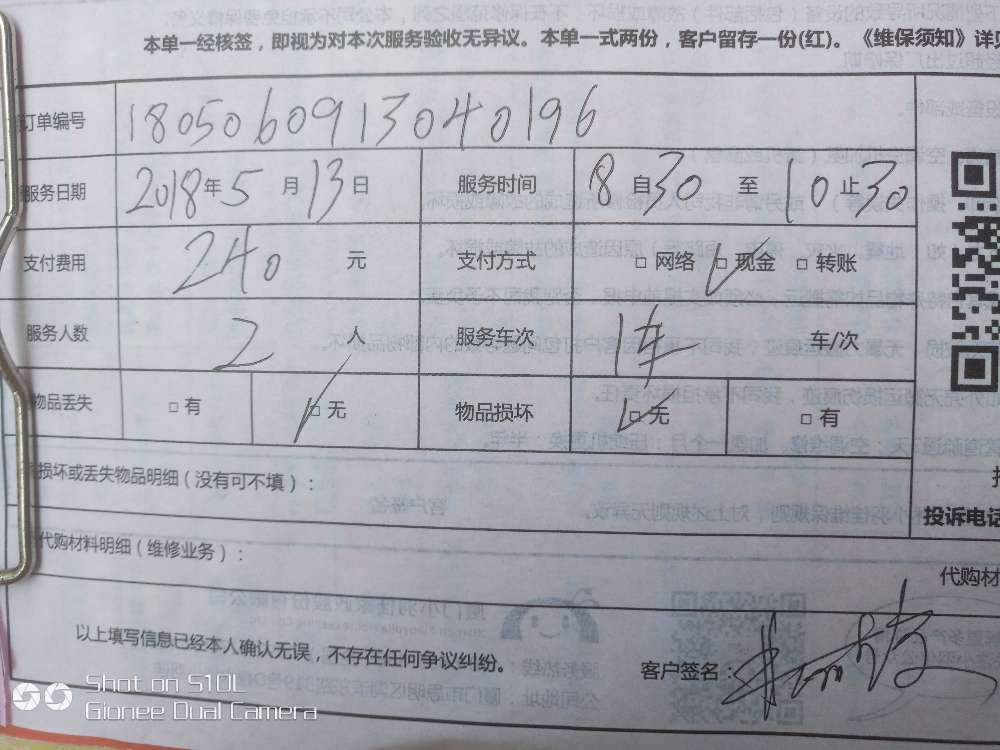 本单一经核签，即视为对本次服务验收无异议。本单一式两份，客户留存一份(红)。《维保须知》详见
订单编号 180506091304 0196
服务日期 2018年5月13日 服务时间 8自30至10止30
支付费用 240元 支付方式 □网络 □现金 □转账
服务人数 2人 服务车次 1车 车/次
物品丢失 □有 □无 物品损坏 □无 □有
损坏或丢失物品明细（没有可不填）：
投诉电话
代购材料明细（维修业务）：
代购材
以上填写信息已经本人确认无误，不存在任何争议纠纷。 客户签名：
Shot on S10L
Gionee Dual Camera